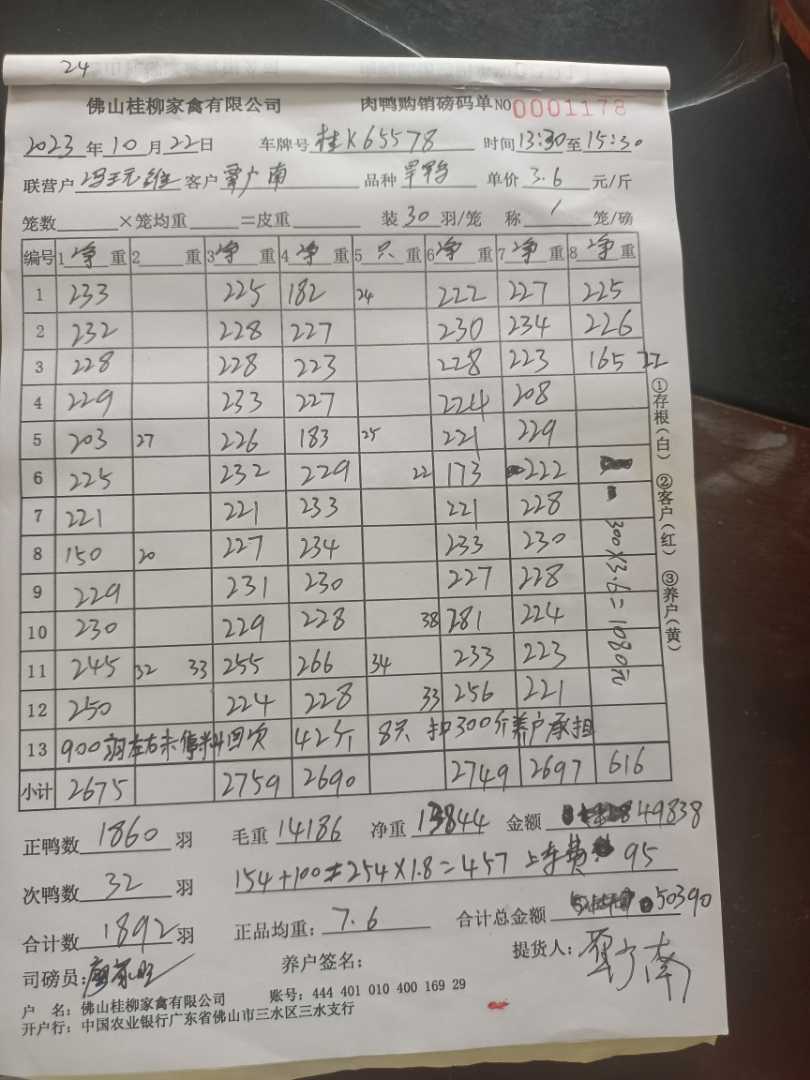 24
佛山桂柳家禽有限公司 肉鸭购销磅码单NO0001178
2023年10月22日 车牌号桂K65578 时间13:30至15:30
联营户冯玉维 客户覃广南 品种旱鸭 单价3.6元/斤
笼数 ×笼均重 =皮重 装30羽/笼 称1笼/磅
编号 1净重 2 重 3净重 4净重 5只重 6净重 7净重 8净重
1 233 225 182 24 222 227 225
2 232 228 227 230 234 226
3 228 228 223 228 223 165 22
4 229 233 227 224 208
5 203 27 226 183 25 221 229
6 225 232 229 22 173 222
7 221 221 233 221 228
8 150 20 227 234 233 230
9 229 231 230 227 228
10 230 229 228 38 281 224
11 245 32 33 255 266 34 233 223
12 250 224 228 33 256 221
13 900羽左右未停料四次 42斤 8只 扣300斤养户承担
小计 2675 2759 2690 2749 2697 616
300×3.6=1080元
①存根(白) ②客户(红) ③养户(黄)
正鸭数1860羽 毛重14186 净重13844 金额49838
次鸭数32羽 154+100=254×1.8=457 上车费 95
合计数1892羽 正品均重:7.6 合计总金额50390
司磅员: 养户签名: 提货人:覃广南
户 名:佛山桂柳家禽有限公司 账号:444 401 010 400 169 29
开户行:中国农业银行广东省佛山市三水区三水支行